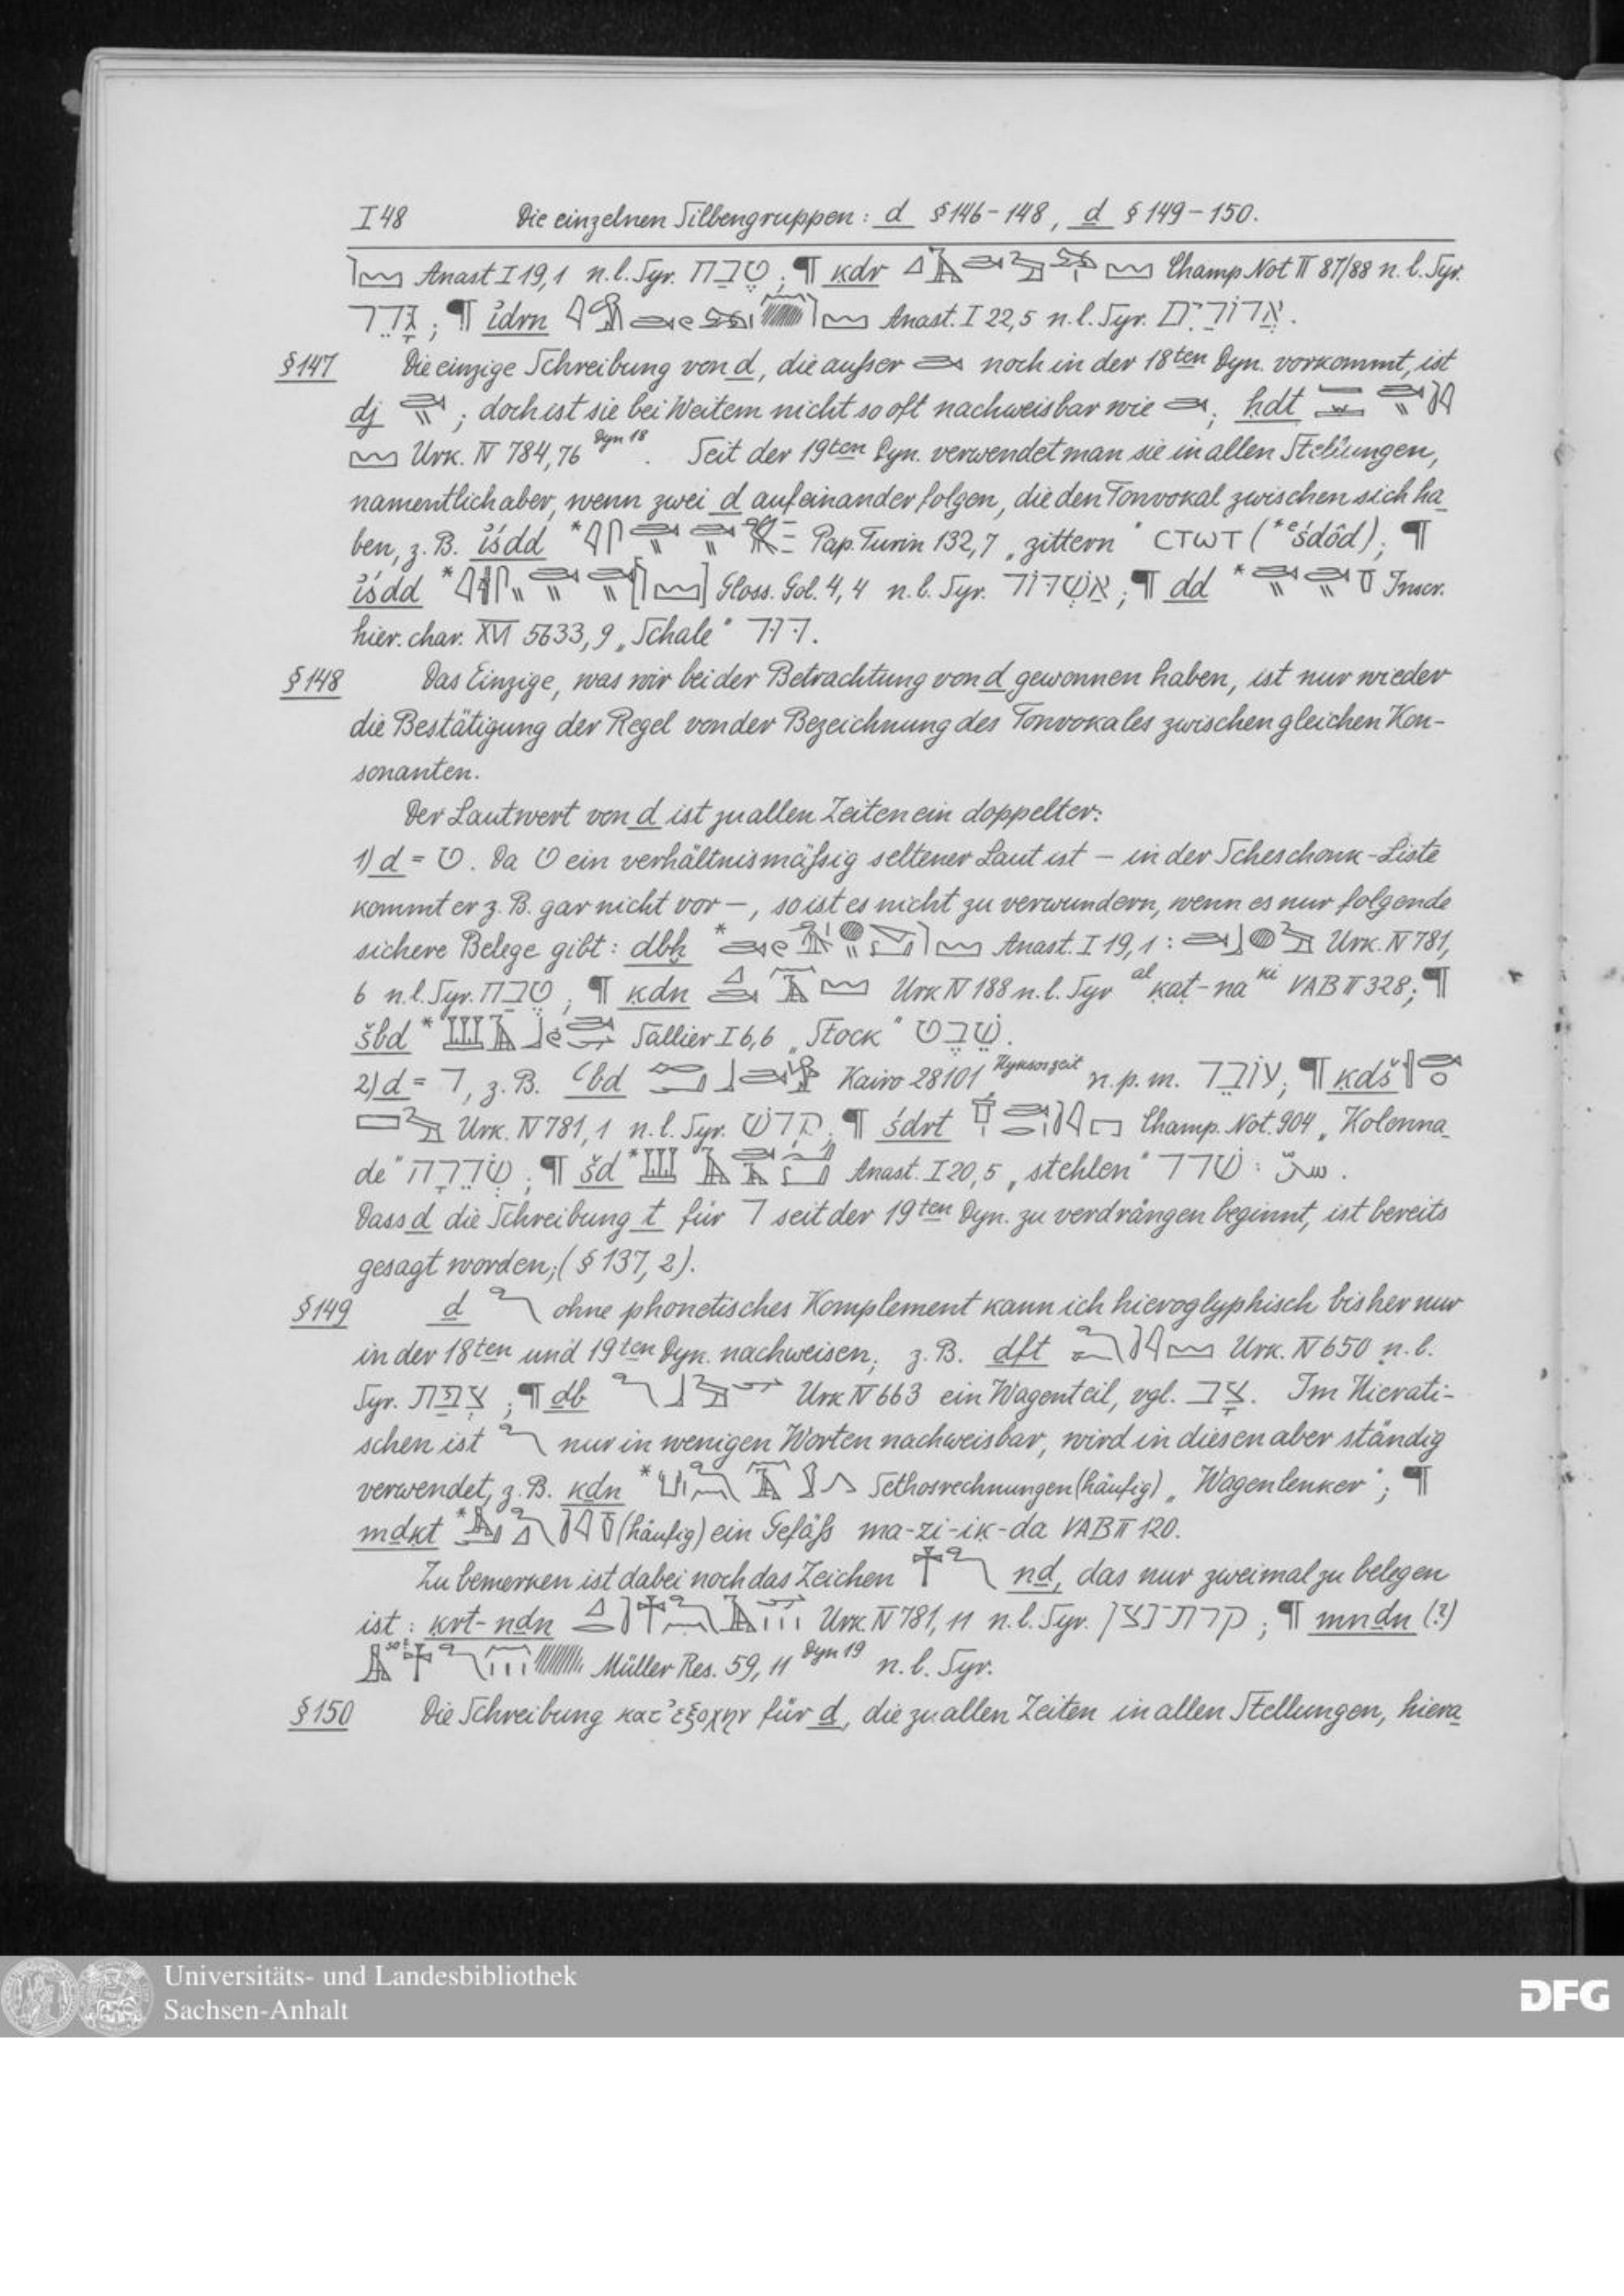 I 48 Die einzelnen Silbengruppen: d § 146-148, ḏ § 149-150.
Anast I 19,1 n.l. Syr. טֶבַח; ¶ kdr Champ Not II 87/88 n.l. Syr.
גֶּדֶר; ¶ idrn Anast. I 22,5 n.l. Syr. אֲדוֹרַיִם.
§ 147 Die einzige Schreibung von d, die außer noch in der 18ten Dyn. vorkommt, ist
dj ; doch ist sie bei Weitem nicht so oft nachweisbar wie ; hdt
Urk. IV 784,76 Dyn 18. Seit der 19ten Dyn. verwendet man sie in allen Stellungen,
namentlich aber, wenn zwei d aufeinander folgen, die den Tonvokal zwischen sich ha
ben, z. B. iśdd * Pap. Turin 132,7 „zittern“ ⲥⲧⲱⲧ (*eśdôd); ¶
iśdd * Gloss. Gol. 4,4 n.l. Syr. אַשְׁדּוֹד; ¶ dd * Inscr.
hier. char. XVI 5633,9 „Schale“ דוד.
§ 148 Das Einzige, was wir bei der Betrachtung von d gewonnen haben, ist nur wieder
die Bestätigung der Regel von der Bezeichnung des Tonvokales zwischen gleichen Kon-
sonanten.
Der Lautwert von d ist zu allen Zeiten ein doppelter:
1) d = ט. Da ט ein verhältnismäßig seltener Laut ist – in der Scheschonk-Liste
kommt er z. B. gar nicht vor –, so ist es nicht zu verwundern, wenn es nur folgende
sichere Belege gibt: dbḫ * Anast. I 19,1: Urk. IV 781,
6 n.l. Syr. טֶבַח; ¶ ḳdn Urk IV 188 n.l. Syr al ḳaṭ-na ki VAB II 328; ¶
šbd * Sallier I 6,6 „Stock“ שֵׁבֶט.
2) d = ד, z. B. ʿbd Kairo 28101 Hyksoszeit n.p.m. עוֹבֵד; ¶ ḳdš
Urk. IV 781,1 n.l. Syr. קָדֵשׁ; ¶ śdrt Champ. Not. 904 „Kolonna
de“ שְׂדֵרָה; ¶ šd * Anast. I 20,5 „stehlen“ שׁדד: .
Dass d die Schreibung t für ד seit der 19ten Dyn. zu verdrängen beginnt, ist bereits
gesagt worden; (§ 137, 2).
§ 149 ḏ ohne phonetisches Komplement kann ich hieroglyphisch bisher nur
in der 18ten und 19ten Dyn. nachweisen; z. B. ḏft Urk. IV 650 n.l.
Syr. צְפַת; ¶ ḏb Urk IV 663 ein Wagenteil, vgl. צָב. Im Hierati-
schen ist nur in wenigen Worten nachweisbar, wird in diesen aber ständig
verwendet, z. B. kḏn * Sethosrechnungen (häufig) „Wagenlenker“; ¶
mḏḳt * (häufig) ein Gefäß ma-zi-ik-da VAB II 120.
Zu bemerken ist dabei noch das Zeichen nḏ, das nur zweimal zu belegen
ist: ḳrt-nḏn Urk. IV 781,11 n.l. Syr. קרת־נצן; ¶ mnḏn (?)
so! Müller Res. 59,11 Dyn 19 n.l. Syr.
§ 150 Die Schreibung κατ' ἐξοχην für ḏ, die zu allen Zeiten in allen Stellungen, hiera
Universitäts- und Landesbibliothek
Sachsen-Anhalt
DFG